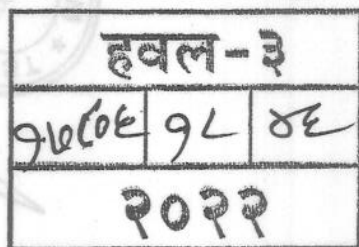 हवल-३
१७८०६ १८ ४६
२०२२